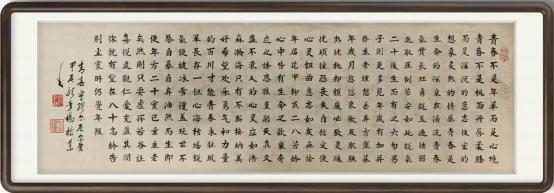 青春不是年华而是心境
青春不是桃面丹唇柔膝
而是深沉的意志恢宏的
想象炙热的情感青春是
生命的深泉在涌流青春
气贯长虹勇锐盖过怯弱
进取压倒苟安如此锐气
二十後生而有之六旬男
子则更多见年岁有加并
非垂老理想丢弃方堕暮
年岁月悠悠衰微只及肌肤
热忱抛却颓废必致灵魂
忧烦惶恐丧失自信定使
心灵扭曲意志如灰无论
年届花甲抑或二八芳龄
心中皆有生命之欢乐奇
迹之诱惑孩童般天真久
盛不衰人的心灵应如浩
淼瀚海只有不断接纳美
好希望欢乐勇气和力量
的百川才能青春永驻风
华长存一旦心海枯竭锐
气便被冰雪覆盖玩世不
恭自暴自弃油然而生即
使年方二十实已垂老
矣然则只要虚怀若谷让
喜悦达观仁爱充盈其间
你就有望在八十高龄告
别尘寰时仍觉年轻